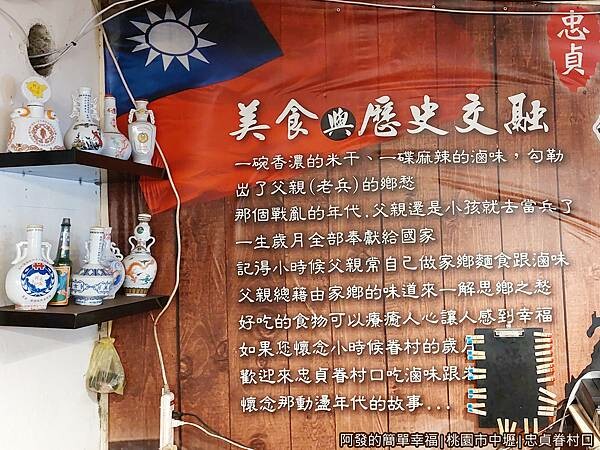 忠貞
美食與歷史交融
一碗香濃的米干、一碟麻辣的滷味，勾勒
出了父親(老兵)的鄉愁
那個戰亂的年代.父親還是小孩就去當兵了
一生歲月全部奉獻給國家
記得小時候父親常自己做家鄉麵食跟滷味
父親總藉由家鄉的味道來一解思鄉之愁
好吃的食物可以療癒人心讓人感到幸福
如果您懷念小時候眷村的歲月
歡迎來忠貞眷村口吃滷味跟米
懷念那動盪年代的故事...
阿發的簡單幸福|桃園市中壢|忠貞眷村口